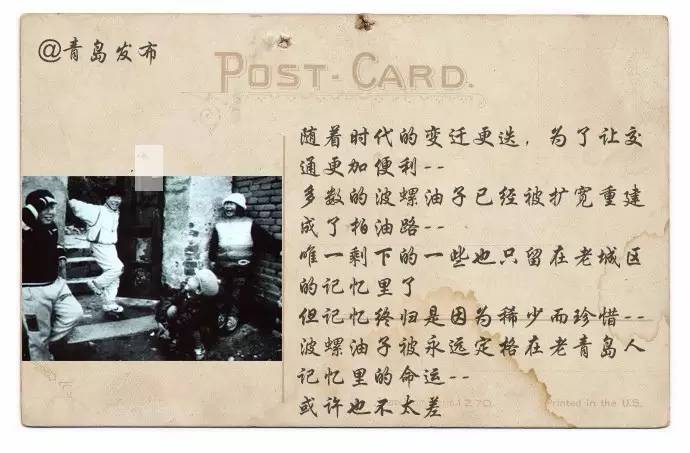 @青岛发布
POST-CARD.
随着时代的变迁更迭，为了让交
通更加便利--
多数的波螺油子已经被扩宽重建
成了柏油路--
唯一剩下的一些也只留在老城区
的记忆里了
但记忆终归是因为稀少而珍惜--
波螺油子被永远定格在老青岛人
记忆里的命运--
或许也不太差
Printed in the U.S.